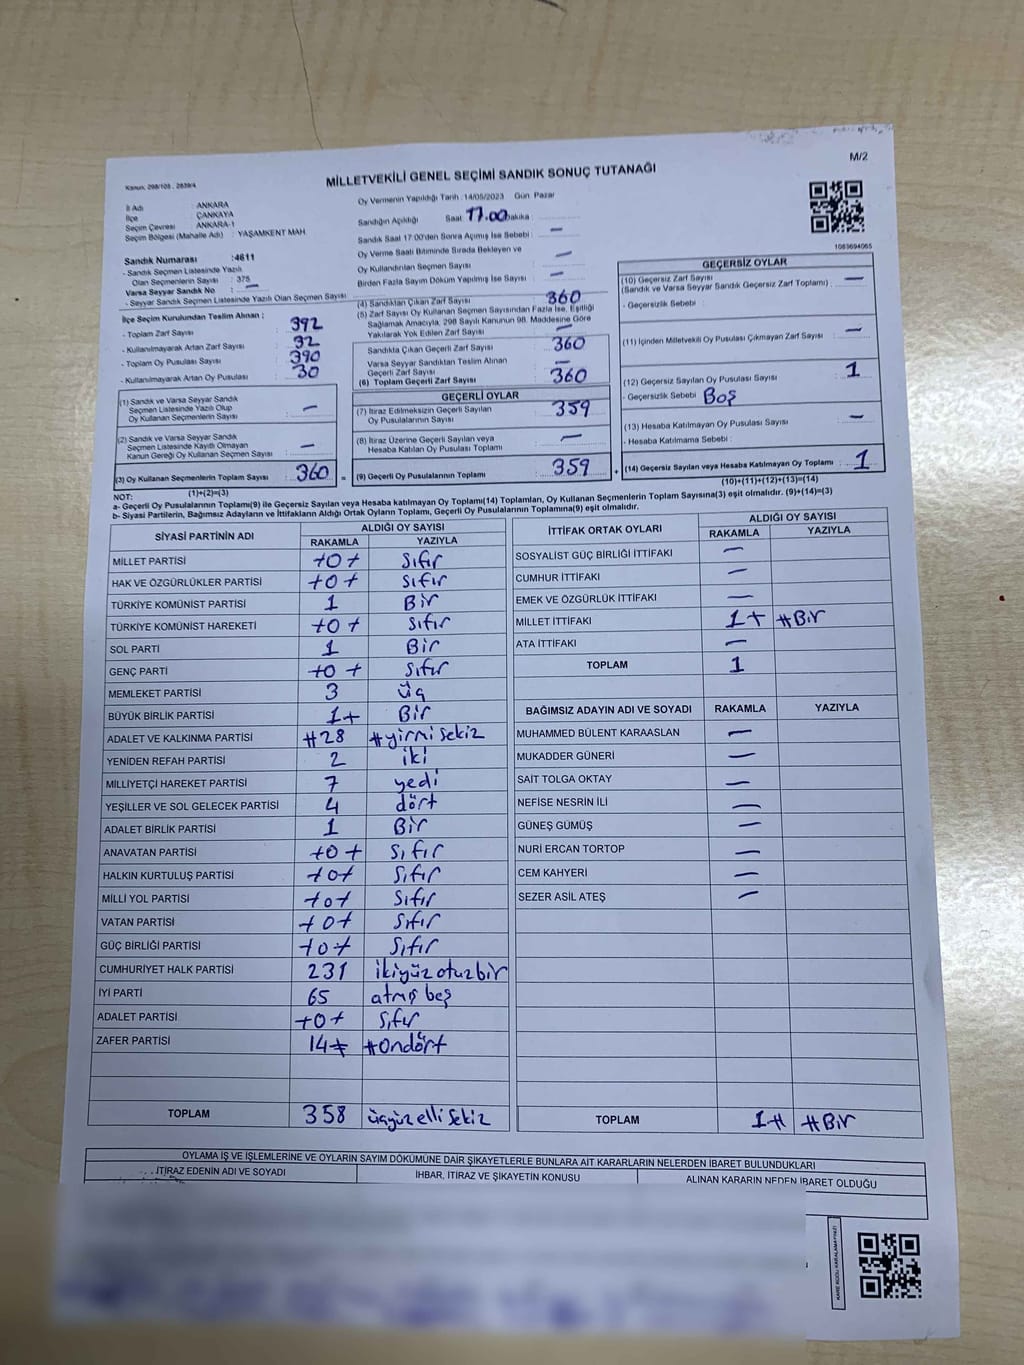 M/2
Kanun, 298/105 , 2839/4
MİLLETVEKİLİ GENEL SEÇİMİ SANDIK SONUÇ TUTANAĞI
İl Adı : ANKARA
İlçe : ÇANKAYA
Seçim Çevresi : ANKARA-1
Seçim Bölgesi (Mahalle Adı) : YAŞAMKENT MAH.
Sandık Numarası :4611
- Sandık Seçmen Listesinde Yazılı
Olan Seçmenlerin Sayısı : 375
Varsa Seyyar Sandık No : —
- Seyyar Sandık Seçmen Listesinde Yazılı Olan Seçmen Sayısı
İlçe Seçim Kurulundan Teslim Alınan :
- Toplam Zarf Sayısı : 392
- Kullanılmayarak Artan Zarf Sayısı : 32
- Toplam Oy Pusulası Sayısı : 390
- Kullanılmayarak Artan Oy Pusulası : 30
(1) Sandık ve Varsa Seyyar Sandık
Seçmen Listesinde Yazılı Olup
Oy Kullanan Seçmenlerin Sayısı : —
(2) Sandık ve Varsa Seyyar Sandık
Seçmen Listesinde Kayıtlı Olmayan
Kanun Gereği Oy Kullanan Seçmen Sayısı : —
(3) Oy Kullanan Seçmenlerin Toplam Sayısı : 360
(1)+(2)=(3)
Oy Vermenin Yapıldığı Tarih :14/05/2023 Gün Pazar
Sandığın Açıldığı Saat 17.00 Dakika :
Sandık Saat 17:00'den Sonra Açımış İse Sebebi : —
Oy Verme Saati Bitiminde Sırada Bekleyen ve
Oy Kullandırılan Seçmen Sayısı : —
Birden Fazla Sayım Döküm Yapılmış İse Sayısı : —
(4) Sandıktan Çıkan Zarf Sayısı : 360
(5) Zarf Sayısı Oy Kullanan Seçmen Sayısından Fazla İse, Eşitliği
Sağlamak Amacıyla, 298 Sayılı Kanunun 98. Maddesine Göre
Yakılarak Yok Edilen Zarf Sayısı : —
Sandıkta Çıkan Geçerli Zarf Sayısı : 360
Varsa Seyyar Sandıktan Teslim Alınan
Geçerli Zarf Sayısı : —
(6) Toplam Geçerli Zarf Sayısı : 360
GEÇERLİ OYLAR
(7) İtiraz Edilmeksizin Geçerli Sayılan
Oy Pusulalarının Sayısı : 359
(8) İtiraz Üzerine Geçerli Sayılan veya
Hesaba Katılan Oy Pusulası Toplamı : —
= (9) Geçerli Oy Pusulalarının Toplamı : 359
1083694065
GEÇERSİZ OYLAR
(10) Geçersiz Zarf Sayısı
(Sandık ve Varsa Seyyar Sandık Geçersiz Zarf Toplamı) : —
- Geçersizlik Sebebi :
(11) İçinden Milletvekili Oy Pusulası Çıkmayan Zarf Sayısı : —
(12) Geçersiz Sayılan Oy Pusulası Sayısı : 1
- Geçersizlik Sebebi : Boş
(13) Hesaba Katılmayan Oy Pusulası Sayısı : —
- Hesaba Katılmama Sebebi :
+ (14) Geçersiz Sayılan veya Hesaba Katılmayan Oy Toplamı : 1
(10)+(11)+(12)+(13)=(14)
NOT:
a- Geçerli Oy Pusulalarının Toplamı(9) ile Geçersiz Sayılan veya Hesaba katılmayan Oy Toplamı(14) Toplamları, Oy Kullanan Seçmenlerin Toplam Sayısına(3) eşit olmalıdır. (9)+(14)=(3)
b- Siyasi Partilerin, Bağımsız Adayların ve İttifakların Aldığı Ortak Oyların Toplamı, Geçerli Oy Pusulalarının Toplamına(9) eşit olmalıdır.
SİYASİ PARTİNİN ADI ALDIĞI OY SAYISI
RAKAMLA YAZIYLA
MİLLET PARTİSİ +0+ Sıfır
HAK VE ÖZGÜRLÜKLER PARTİSİ +0+ Sıfır
TÜRKİYE KOMÜNİST PARTİSİ 1 Bir
TÜRKİYE KOMÜNİST HAREKETİ +0+ Sıfır
SOL PARTİ 1 Bir
GENÇ PARTİ +0+ Sıfır
MEMLEKET PARTİSİ 3 üç
BÜYÜK BİRLİK PARTİSİ 1+ Bir
ADALET VE KALKINMA PARTİSİ #28 #yirmi sekiz
YENİDEN REFAH PARTİSİ 2 iki
MİLLİYETÇİ HAREKET PARTİSİ 7 yedi
YEŞİLLER VE SOL GELECEK PARTİSİ 4 dört
ADALET BİRLİK PARTİSİ 1 Bir
ANAVATAN PARTİSİ +0+ Sıfır
HALKIN KURTULUŞ PARTİSİ +0+ Sıfır
MİLLİ YOL PARTİSİ +0+ Sıfır
VATAN PARTİSİ +0+ Sıfır
GÜÇ BİRLİĞİ PARTİSİ +0+ Sıfır
CUMHURİYET HALK PARTİSİ 231 ikiyüz otuz bir
İYİ PARTİ 65 atmış beş
ADALET PARTİSİ +0+ Sıfır
ZAFER PARTİSİ 14# #Ondört
TOPLAM 358 üçyüz elli sekiz
İTTİFAK ORTAK OYLARI ALDIĞI OY SAYISI
RAKAMLA YAZIYLA
SOSYALİST GÜÇ BİRLİĞİ İTTİFAKI —
CUMHUR İTTİFAKI —
EMEK VE ÖZGÜRLÜK İTTİFAKI —
MİLLET İTTİFAKI 1+ #Bir
ATA İTTİFAKI —
TOPLAM 1
BAĞIMSIZ ADAYIN ADI VE SOYADI RAKAMLA YAZIYLA
MUHAMMED BÜLENT KARAASLAN —
MUKADDER GÜNERİ —
SAİT TOLGA OKTAY —
NEFİSE NESRİN İLİ —
GÜNEŞ GÜMÜŞ —
NURİ ERCAN TORTOP —
CEM KAHYERİ —
SEZER ASİL ATEŞ —
TOPLAM 1# #Bir
OYLAMA İŞ VE İŞLEMLERİNE VE OYLARIN SAYIM DÖKÜMÜNE DAİR ŞİKAYETLERLE BUNLARA AİT KARARLARIN NELERDEN İBARET BULUNDUKLARI
İTİRAZ EDENİN ADI VE SOYADI IHBAR, İTİRAZ VE ŞİKAYETİN KONUSU ALINAN KARARIN NEDEN İBARET OLDUĞU
KARE KODU KARALAMAYINIZ!